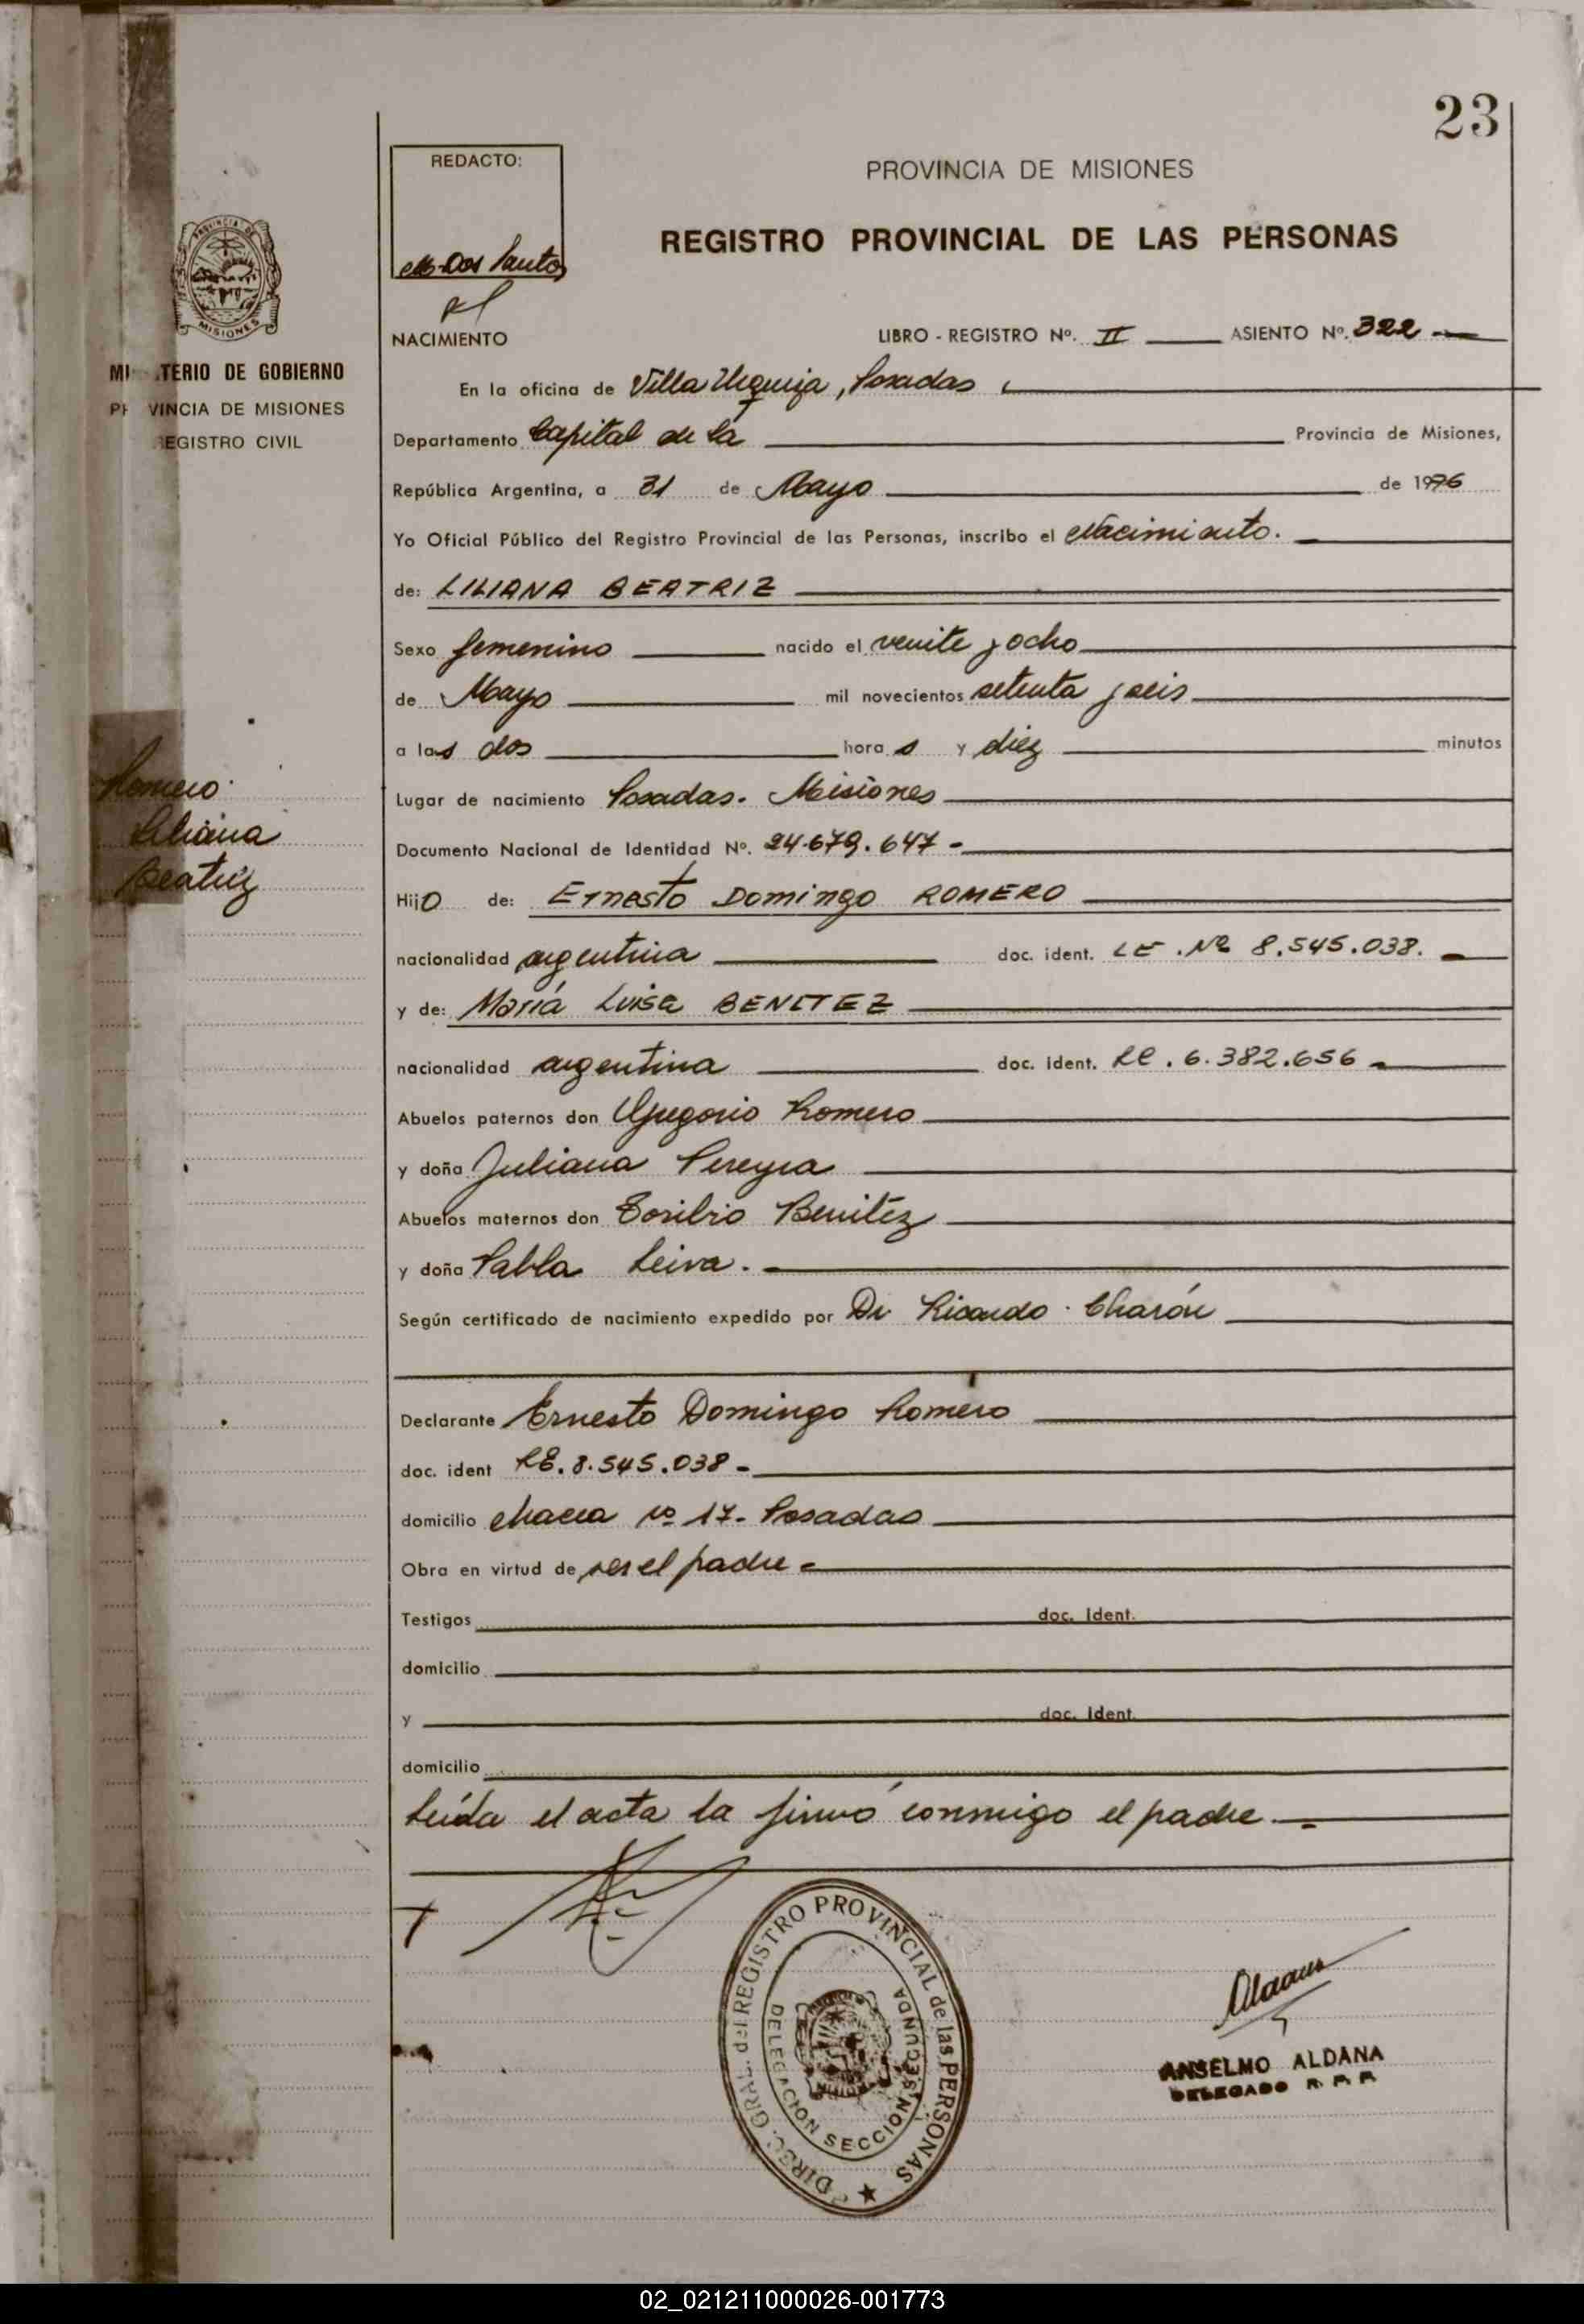 23
REDACTO:
M. Dos Santos
PROVINCIA DE MISIONES
REGISTRO PROVINCIAL DE LAS PERSONAS
PROVINCIA DE
MISIONES
MI TERIO DE GOBIERNO
P VINCIA DE MISIONES
EGISTRO CIVIL
NACIMIENTO
LIBRO - REGISTRO Nº. II ASIENTO Nº. 322
En la oficina de Villa Urquiza, Posadas
Departamento Capital de la Provincia de Misiones,
República Argentina, a 31 de Mayo de 1976
Yo Oficial Público del Registro Provincial de las Personas, inscribo el Nacimiento.
de: LILIANA BEATRIZ
Sexo femenino nacido el veinte y ocho
de Mayo mil novecientos setenta y seis
a las dos horas y diez minutos
Romero
Liliana
Beatriz
Lugar de nacimiento Posadas. Misiones
Documento Nacional de Identidad Nº. 24.679.647 -
Hijo de: Ernesto Domingo ROMERO
nacionalidad argentina doc. ident. LE. Nº 8.545.038.
y de: María Luisa BENITEZ
nacionalidad argentina doc. ident. LC. 6.382.656
Abuelos paternos don Gregorio Romero
y doña Juliana Pereyra
Abuelos maternos don Toribio Benitez
y doña Pabla Leiva.
Según certificado de nacimiento expedido por Dr Ricardo Charón
Declarante Ernesto Domingo Romero
doc. ident LE. 8.545.038 -
domicilio chacra nº 17. Posadas
Obra en virtud de ser el padre
Testigos doc. ident.
domicilio
y doc. ident.
domicilio
Leída el acta la firmó conmigo el padre.
DIREC. GRAL. del REGISTRO PROVINCIAL de las PERSONAS
DELEGACION SECCION SEGUNDA
ANSELMO ALDANA
DELEGADO R. P. P.
02_021211000026-001773